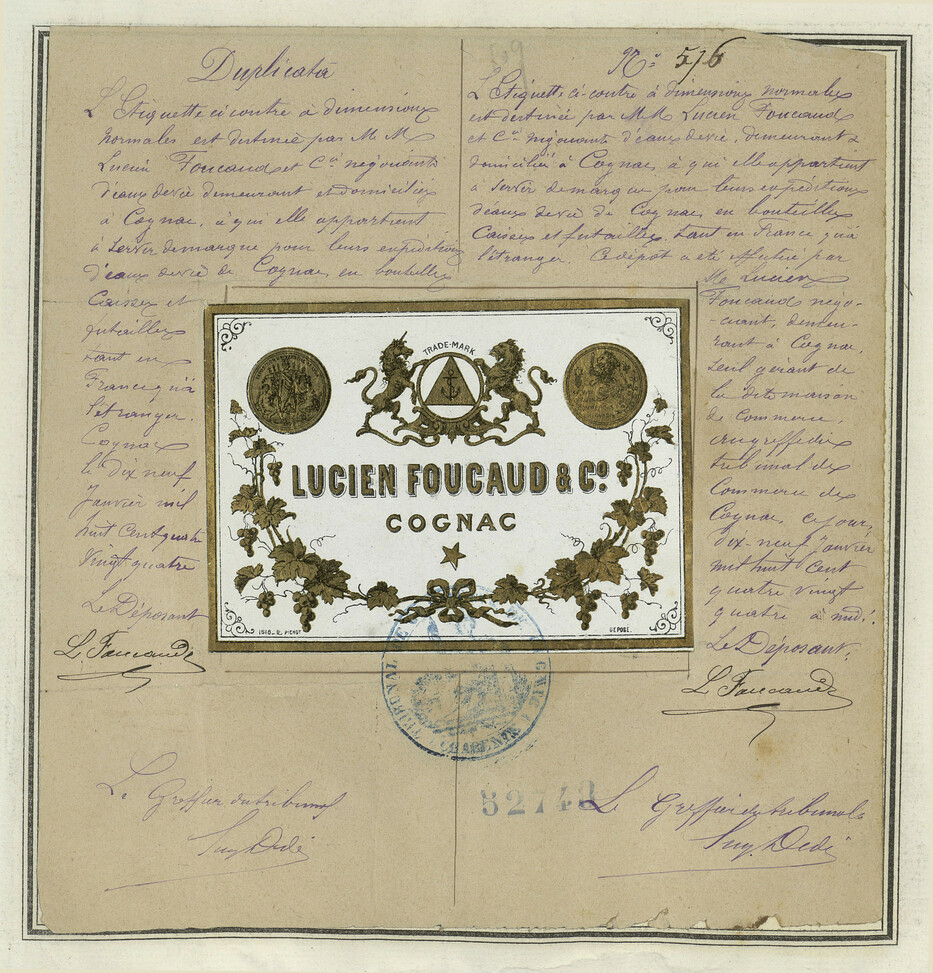 Duplicata
L'Etiquette ci-contre à dimensions
normales est destinée par M. M.
Lucien Foucaud et Cie négociants
d'eaux de vie demeurant et domiciliés
à Cognac, à qui elle appartient
à servir de marque pour leurs expéditions
d'eaux de vie de Cognac en bouteilles
Caisses et
futailles
tant en
France qu'à
l'étranger.
Cognac
le dix neuf
Janvier mil
huit cent quatre
vingt quatre
Le Déposant
L. Foucaud
Le Greffier du tribunal
No 516
L'Etiquette ci-contre à dimensions normales
est destinée par M.M. Lucien Foucaud
et Cie négociants d'eaux de vie, demeurant &
domiciliés à Cognac, à qui elle appartient
à servir de marque pour leurs expéditions
d'eaux de vie de Cognac en bouteilles
Caisses et futailles, tant en France qu'à
l'étranger. Ce dépôt a été effectué par
Mr Lucien
Foucaud négo-
-ciant, demeu-
rant à Cognac,
seul gérant de
la dite maison
de Commerce,
au greffe du
tribunal de
Commerce de
Cognac, ce jour,
dix-neuf Janvier
mil huit cent
quatre vingt
quatre à midi.
Le Déposant,
L. Foucaud
Le Greffier du tribunal
TRADE-MARK
LUCIEN FOUCAUD & Co.
COGNAC
DÉPOSÉ
TRIBUNAL DE
CHARENTE
52748